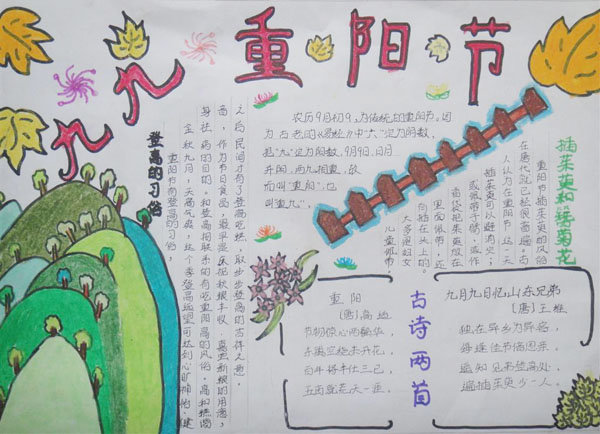 九九重阳节
农历9月初9,为传统的重阳节,因
为古老的《易经》中"六"定为阴数,
把"九"定为阳数,9月9日,日月
并阳,两九相重,故
而叫"重阳",也
叫"重九"。
登高的习俗
重阳节有登高的习俗,
金秋九月,天高气爽,这个季登高远望可达到心旷神怡,健
身祛病的目的。和登高相联系的有吃重阳高的风俗。高和糕谐
之后民间才有了登高吃糕,取步步登高的吉祥之意。
插茱萸和簪菊花
重阳节插茱萸的风俗
在唐代就已经很普遍。古
人认为在重阳节这一天
插茱萸可以避消灾;
或佩带于臂,或作
香袋把茱萸放在
里面佩带,还
有插在头上的。
大多是妇女
儿童佩带,
古诗两首
重阳
(唐)高适
节物惊心两鬓华,
东篱空绕未开花,
百年将半仕三已,
五亩就荒天一涯。
九月九日忆山东兄弟
(唐)王维
独在异乡为异客,
每逢佳节倍思亲。
遥知兄弟登高处,
遍插茱萸少一人。